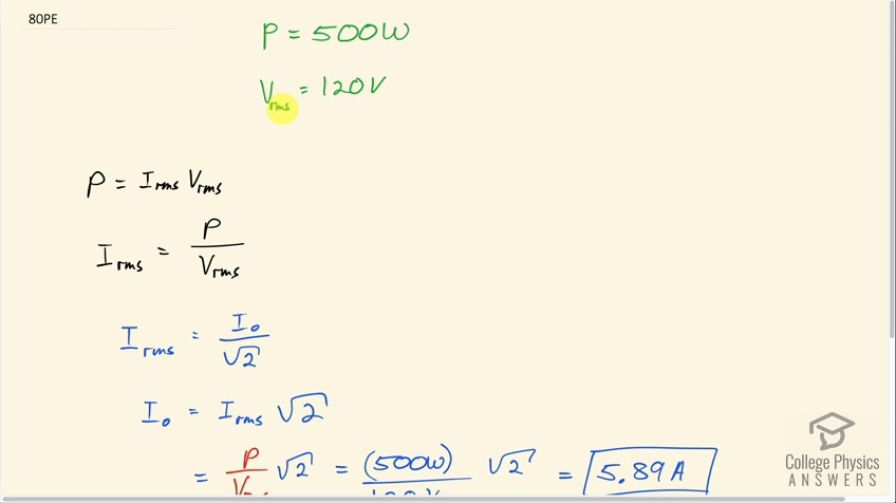 80PE
P = 500W
Vrms = 120V
P = Irms Vrms
Irms = P / Vrms
Irms = I₀ / √2
I₀ = Irms √2
= P / √2 = (500W) / √2 = 5.89A
College Physics
ANSWERS